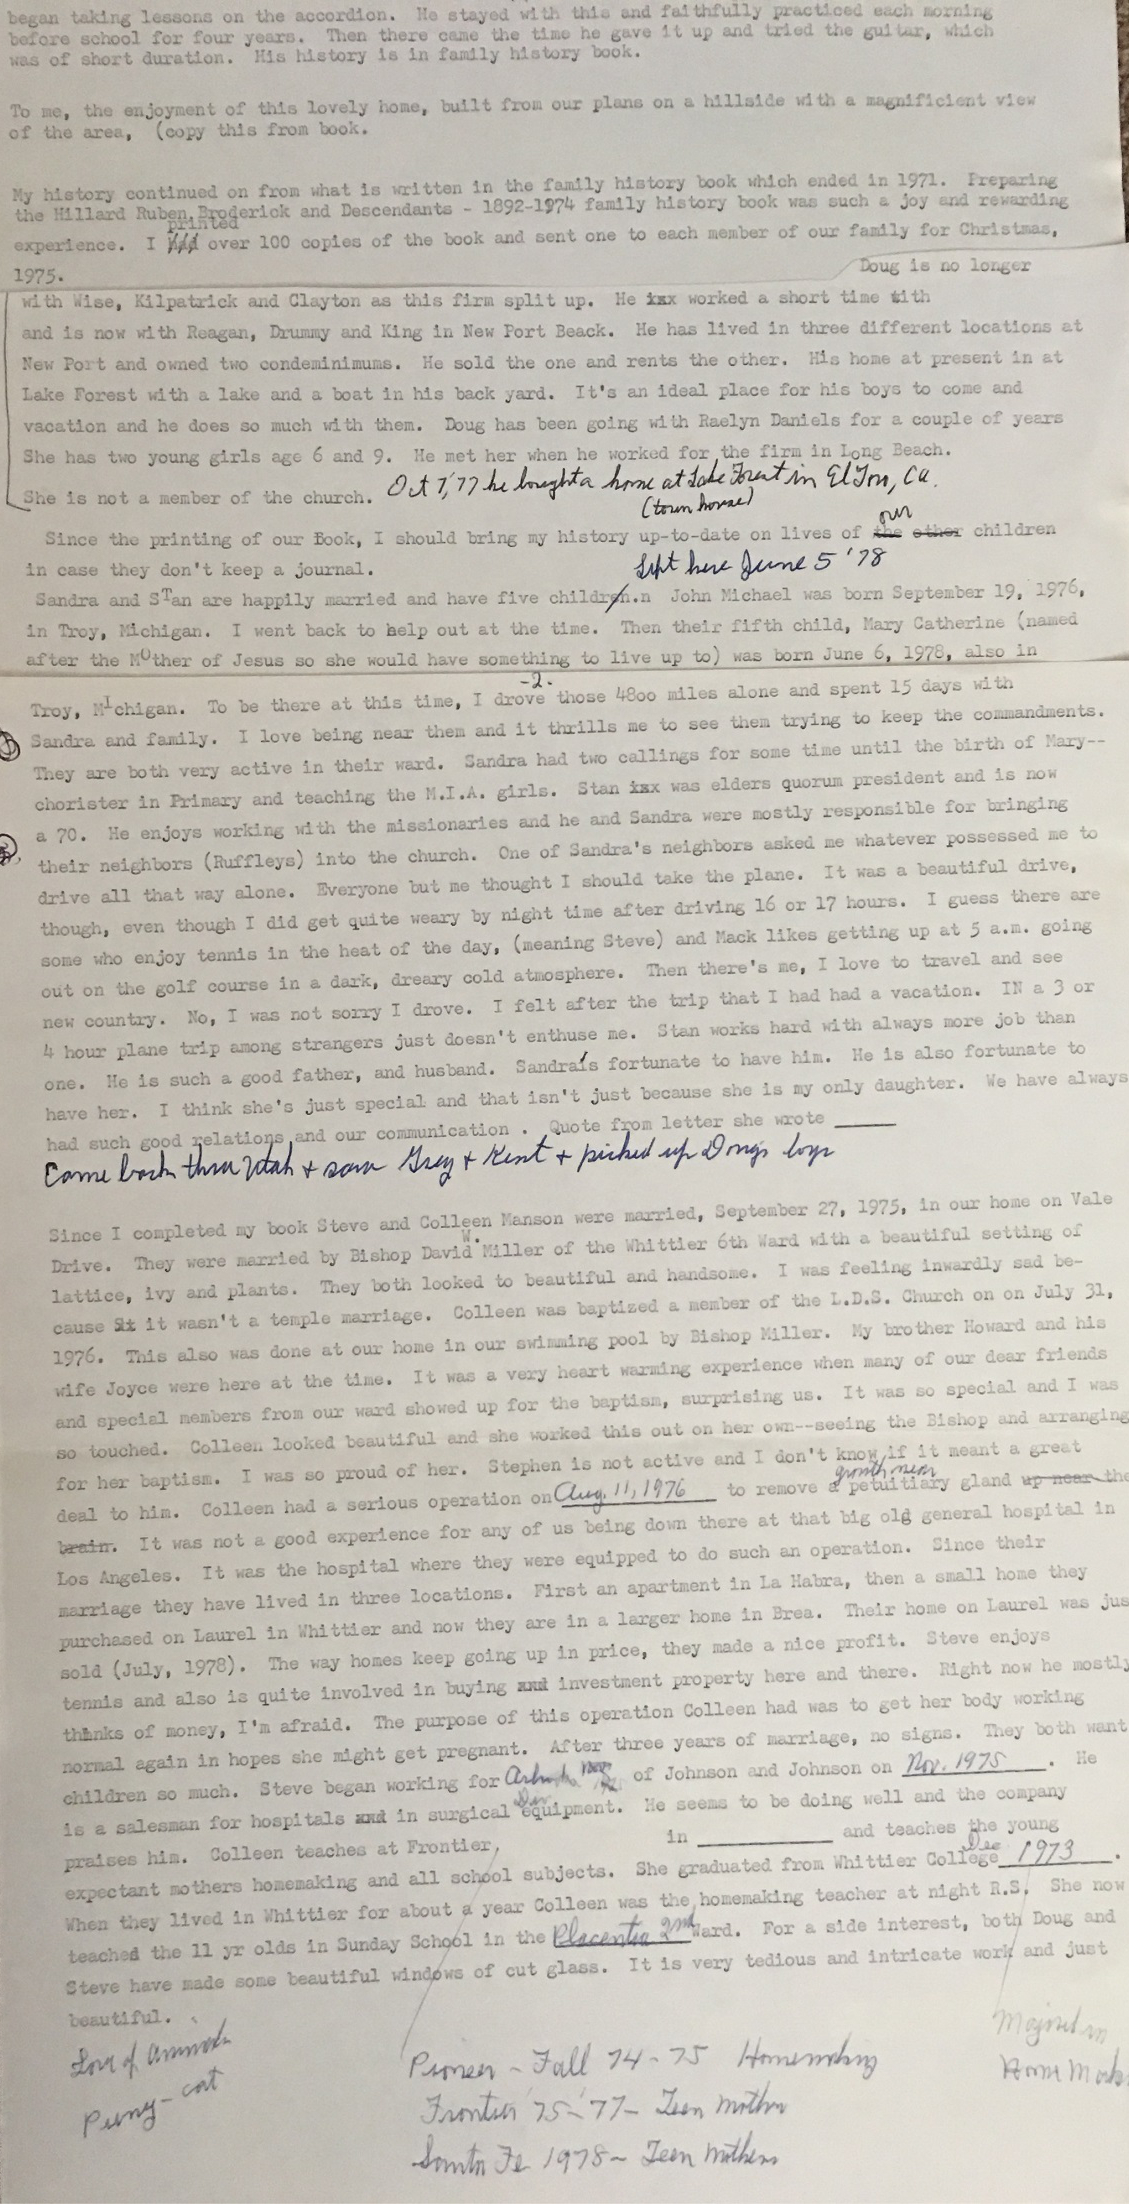 began taking lessons on the accordion. He stayed with this and faithfully practiced each morning
before school for four years. Then there came the time he gave it up and tried the guitar, which
was of short duration. His history is in family history book.
To me, the enjoyment of this lovely home, built from our plans on a hillside with a magnificient view
of the area, (copy this from book.
My history continued on from what is written in the family history book which ended in 1971. Preparing
the Hillard Ruben Broderick and Descendants - 1892-1974 family history book was such a joy and rewarding
printed
experience. I over 100 copies of the book and sent one to each member of our family for Christmas,
1975.
Doug is no longer
with Wise, Kilpatrick and Clayton as this firm split up. He ixx worked a short time tith
and is now with Reagan, Drummy and King in New Port Beack. He has lived in three different locations at
New Port and owned two condeminimums. He sold the one and rents the other. His home at present in at
Lake Forest with a lake and a boat in his back yard. It's an ideal place for his boys to come and
vacation and he does so much with them. Doug has been going with Raelyn Daniels for a couple of years
She has two young girls age 6 and 9. He met her when he worked for the firm in Long Beach.
She is not a member of the church. Oct 7,'77 he bought a home at Lake Forest in El Toro, Ca.
(town house)
our
Since the printing of our Book, I should bring my history up-to-date on lives of the other children
in case they don't keep a journal. Left here June 5 '78
Sandra and STan are happily married and have five children.n John Michael was born September 19, 1976,
in Troy, Michigan. I went back to help out at the time. Then their fifth child, Mary Catherine (named
after the MOther of Jesus so she would have something to live up to) was born June 6, 1978, also in
-2-
Troy, MIchigan. To be there at this time, I drove those 48oo miles alone and spent 15 days with
Sandra and family. I love being near them and it thrills me to see them trying to keep the commandments.
They are both very active in their ward. Sandra had two callings for some time until the birth of Mary--
chorister in Primary and teaching the M.I.A. girls. Stan ixx was elders quorum president and is now
a 70. He enjoys working with the missionaries and he and Sandra were mostly responsible for bringing
their neighbors (Ruffleys) into the church. One of Sandra's neighbors asked me whatever possessed me to
drive all that way alone. Everyone but me thought I should take the plane. It was a beautiful drive,
though, even though I did get quite weary by night time after driving 16 or 17 hours. I guess there are
some who enjoy tennis in the heat of the day, (meaning Steve) and Mack likes getting up at 5 a.m. going
out on the golf course in a dark, dreary cold atmosphere. Then there's me, I love to travel and see
new country. No, I was not sorry I drove. I felt after the trip that I had had a vacation. IN a 3 or
4 hour plane trip among strangers just doesn't enthuse me. Stan works hard with always more job than
one. He is such a good father, and husband. Sandra's fortunate to have him. He is also fortunate to
have her. I think she's just special and that isn't just because she is my only daughter. We have always
had such good relations and our communication . Quote from letter she wrote _____
Came back thru Utah + saw Greg + Kent + picked up Dougs boys
Since I completed my book Steve and Colleen Manson were married, September 27, 1975, in our home on Vale
W.
Drive. They were married by Bishop David Miller of the Whittier 6th Ward with a beautiful setting of
lattice, ivy and plants. They both looked to beautiful and handsome. I was feeling inwardly sad be-
cause it wasn't a temple marriage. Colleen was baptized a member of the L.D.S. Church on on July 31,
1976. This also was done at our home in our swimming pool by Bishop Miller. My brother Howard and his
wife Joyce were here at the time. It was a very heart warming experience when many of our dear friends
and special members from our ward showed up for the baptism, surprising us. It was so special and I was
so touched. Colleen looked beautiful and she worked this out on her own--seeing the Bishop and arranging
for her baptism. I was so proud of her. Stephen is not active and I don't know if it meant a great
growth near
deal to him. Colleen had a serious operation on Aug. 11, 1976 to remove a petuitiary gland up near the
brain. It was not a good experience for any of us being down there at that big old general hospital in
Los Angeles. It was the hospital where they were equipped to do such an operation. Since their
marriage they have lived in three locations. First an apartment in La Habra, then a small home they
purchased on Laurel in Whittier and now they are in a larger home in Brea. Their home on Laurel was jus
sold (July, 1978). The way homes keep going up in price, they made a nice profit. Steve enjoys
tennis and also is quite involved in buying and investment property here and there. Right now he mostly
thinks of money, I'm afraid. The purpose of this operation Colleen had was to get her body working
normal again in hopes she might get pregnant. After three years of marriage, no signs. They both want
children so much. Steve began working for of Johnson and Johnson on Nov. 1975 . He
Div
is a salesman for hospitals and in surgical equipment. He seems to be doing well and the company
praises him. Colleen teaches at Frontier, in __________ and teaches the young
Dec
expectant mothers homemaking and all school subjects. She graduated from Whittier College 1973 .
When they lived in Whittier for about a year Colleen was the homemaking teacher at night R.S. She now
teached the 11 yr olds in Sunday School in the Placentia 2nd Ward. For a side interest, both Doug and
Steve have made some beautiful windows of cut glass. It is very tedious and intricate work and just
beautiful.
Love of animals
Puny - cat
Pioneer - Fall 74-75 Homemaking
Frontier '75-'77- Teen Mother
Santa Fe 1978- Teen Mothers
Majored in
Home